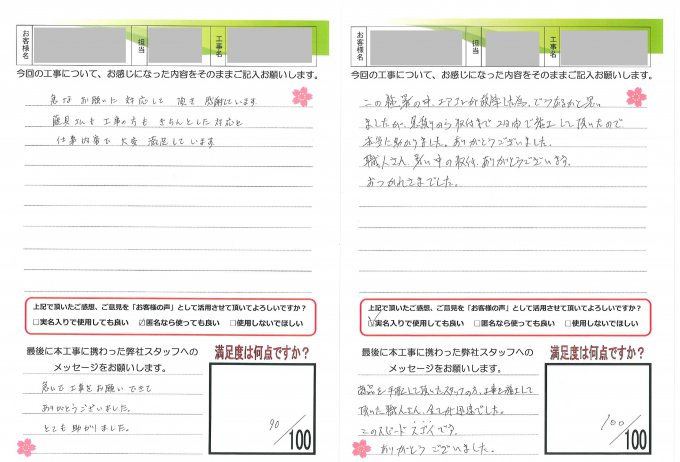 お客様名
担当
工事名
今回の工事について、お感じになった内容をそのままご記入お願いします。
急な お願いに 対応して 頂き 感謝しています
工事の方も きちんとした対応と
仕事内容で 大変 満足しています
上記で頂いたご感想、ご意見を「お客様の声」として活用させて頂いてよろしいですか？
□実名入りで使用しても良い ☑匿名なら使っても良い □使用しないでほしい
最後に本工事に携わった弊社スタッフへの
メッセージをお願いします。
急いで 工事を お願い できて
ありがとうございました。
とても 助かりました。
満足度は何点ですか？
90/100
お客様名
担当
工事名
今回の工事について、お感じになった内容をそのままご記入お願いします。
この猛暑の中、エアコンが故障した為、どうなるかと思い
ましたが、見積りから取付まで2日中で施工して頂いたので
本当に助かりました。ありがとうございました。
職人さん、暑い中の取付、ありがとうございます。
おつかれさまでした。
上記で頂いたご感想、ご意見を「お客様の声」として活用させて頂いてよろしいですか？
☑実名入りで使用しても良い □匿名なら使っても良い □使用しないでほしい
最後に本工事に携わった弊社スタッフへの
メッセージをお願いします。
商品を手配して頂いたスタッフの方、工事を施工して
頂いた職人さん、全てが迅速でした。
このスピード エグイです。
ありがとうございました。
満足度は何点ですか？
100/100